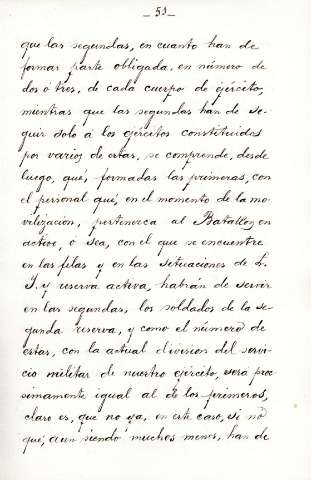 - 53 -
que las segundas, en cuanto han de
formar parte obligada, en número de
dos ó tres, de cada cuerpo de ejército,
mientras que las segundas han de se-
guir solo á los ejércitos constituidos
por varios de estos, se comprende, desde
luego, qué, formadas las primeras, con
el personal qué, en el momento de la mo-
vilización, pertenezca al Batallon en
activo, ó sea, con el que se encuentre
en las filas y en las situaciones de L.
I. y reserva activa, habrán de servir
en las segundas, los soldados de la se-
gunda reserva, y como el número de
estas, con la actual division del servi-
cio militar de nuestro ejército, será pro-
simamente igual al de los primeros,
claro es, que no ya, en este caso, si no
qué, aun siendo muchos menos, han de